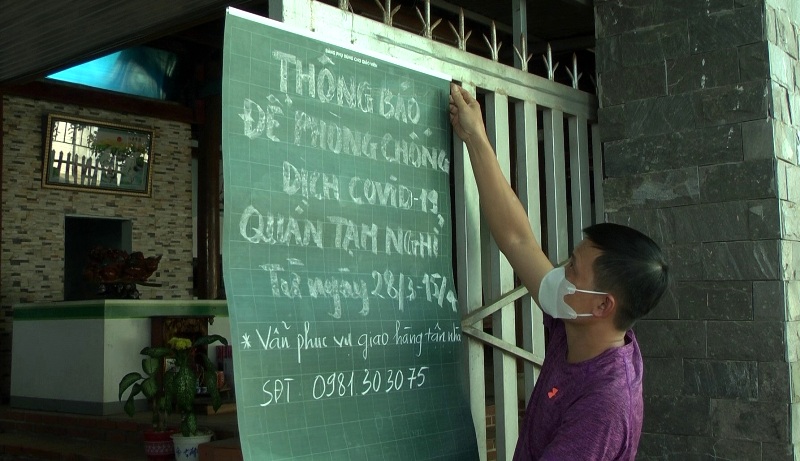 BẢNG PHỤ DÙNG CHO GIÁO VIÊN
THÔNG BÁO
ĐỂ PHÒNG CHỐNG
DỊCH COVID-19
QUÁN TẠM NGHỈ
Từ ngày 28/3-15/4
* Vẫn phục vụ giao hàng tận nhà
SĐT 0981 30 30 75